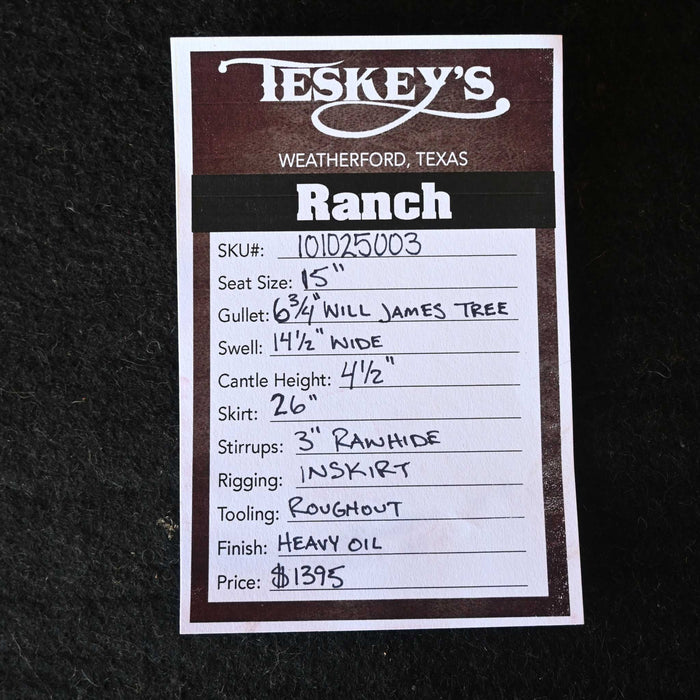 TESKEY'S
WEATHERFORD, TEXAS
Ranch
SKU#: 101025003
Seat Size: 15"
Gullet: 6 3/4" WILL JAMES TREE
Swell: 14 1/2" WIDE
Cantle Height: 4 1/2"
Skirt: 26"
Stirrups: 3" RAWHIDE
Rigging: INSKIRT
Tooling: ROUGHOUT
Finish: HEAVY OIL
Price: $1395